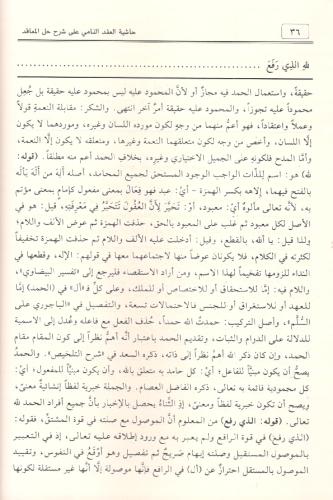 ٣٦
حاشية العقد النامي على شرح حل المعاقد
للهِ الَّذِي رَفَعَ
حقيقةً، واستعمال الحمد فيه مجازٌ أو لأنَّ المحمود عليه ليس بمحمود عليه حقيقة بل جُعِل
محموداً عليه تجوزاً، والمحمود عليه حقيقةً أمرٌ آخر انتهى. والشكر: مقابلة النعمة قولاً
وعملاً واعتقاداً، فهو أعمُّ منهما من وجهٍ لكون مورده اللسان وغيره، وموردهما لا يكون
إلَّا اللسان، وأخص من وجه لكون متعلقهما النعمة وغيرها، ومتعلقه لا يكون إلَّا النعمة،
وأمَّا المدح فلكونه على الجميل الاختياري وغيره، بخلاف الحمد أعم منه مطلقاً. (قوله:
لله) هو: اسم للذَّات الواجب الوجود المستحق لجميع المحامد، أصله أله من أَلَهَ يَأْلَه
بالفتح فيهما، إلاهه بكسر الهمزة - أي: عبد فهو فعال بمعنى مفعول كإمام بمعنى مؤتم
به، لأنَّه تعالى مألوهٌ أيْ: معبود، أو: تَحَيَّر لأَنَّ العُقُولَ تَتَحَيَّرُ فِي مَعْرِفَتِهِ، قيل: هو في
الأصل لكل معبود ثم غلب على المعبود بالحق، حذفت الهمزة ثم عوض الألف واللام؛
ولذا قيل: يا ألله، بالقطع، وقيل: أدخلت عليه الألف واللام ثم حذفت الهمزة تخفيفاً
لكثرته في الكلام، فلا يكونان عوضاً منها لاجتماعهما معها في قولهم: الإله، وقطعها في
النداء للزومها تفخيماً لهذا الاسم، ومن أراد الاستقصاء فليرجع إلى "تفسير البيضاوي"،
واللام فيه: إمَّا للاستحقاق أو للاختصاص أو للملك، وعلى كلٍّ فـ(أل» في (الحمد) إمَّا
للعهد أو للاستغراق أو للجنس فالاحتمالات تسعة، والتفصيل في «الباجوري على
السُّلَّم»، وأصل التركيب: حمدتُ الله حمداً، حُذف الفعل مع فاعله وعُدل إلى الاسمية
للدلالة على الدوام والثبات، وتقديم الحمد باعتبار أنَّه أهمُّ نظراً إلى كون المقام مقام
الحمد، وإن كان ذكر الله أهمَّ نظراً إلى ذاته، ذكره السعد في "شرح التلخيص". والحمدُ
يصحُّ أن يكون مبنيًّا للفاعل؛ أيْ: كل حامد به متعلق بالله، وأن يكون مبنيًّا للمفعول؛ أيْ:
كل محمودية قائمة به تعالى، ذكره الفاضل العصام. والجملة خبرية لفظاً إنشائية معنىً،
ويصح أن يكون خبرية لفظاً ومعنىً، إذ الثَّناءُ يحصل بالإخبار بأنَّ جميع أفراد الحمد لله
تعالى. (قوله: الذي رفع) من المعلوم أنَّ الموصول مع صلته في قوة المشتقِّ، فقوله:
(الذي رفع) في قوة الرافع ولم يعبر به مع ورود إطلاقه عليه تعالى، إذ في التعبير
بالموصول المستقبل وصلته إبهام صريحٌ ثم تفصيل وهو أوْقَعُ في النفوس، وتقييد
الموصول بالمستقل احترازٌ عن (أل) في الرافع فإنَّها موصولة إلَّا أنَّها غير مستقلة لكونها